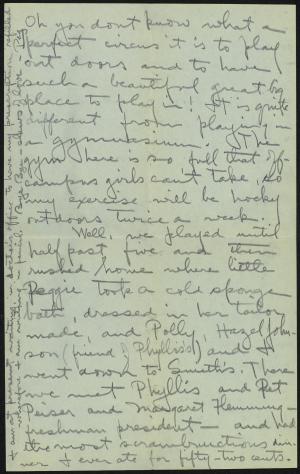 Oh you dont know what a
perfect circus it is to play
out doors and to have
such a beautiful great big
place to play in! It is quite
different from playing in
a gymnasium. (The
gym here is so full that off-
campus girls can't take, so
my exercise will be hocky
outdoors twice a week.
Well, we played until
half past five and then
rushed home where little
Peggie took a cold sponge
bath, dressed in her tailor
made, and Polly, Hazel John-
son (friend of Phyllis's) and I
went down to Smiths. There
we met Phyllis and Pet
Peiser and Margaret Flemming -
freshman president - and had
the most scrambructious din-
ner I ever ate for fifty-two cents.
I am at present waiting in doctors office to have my prescription refilled